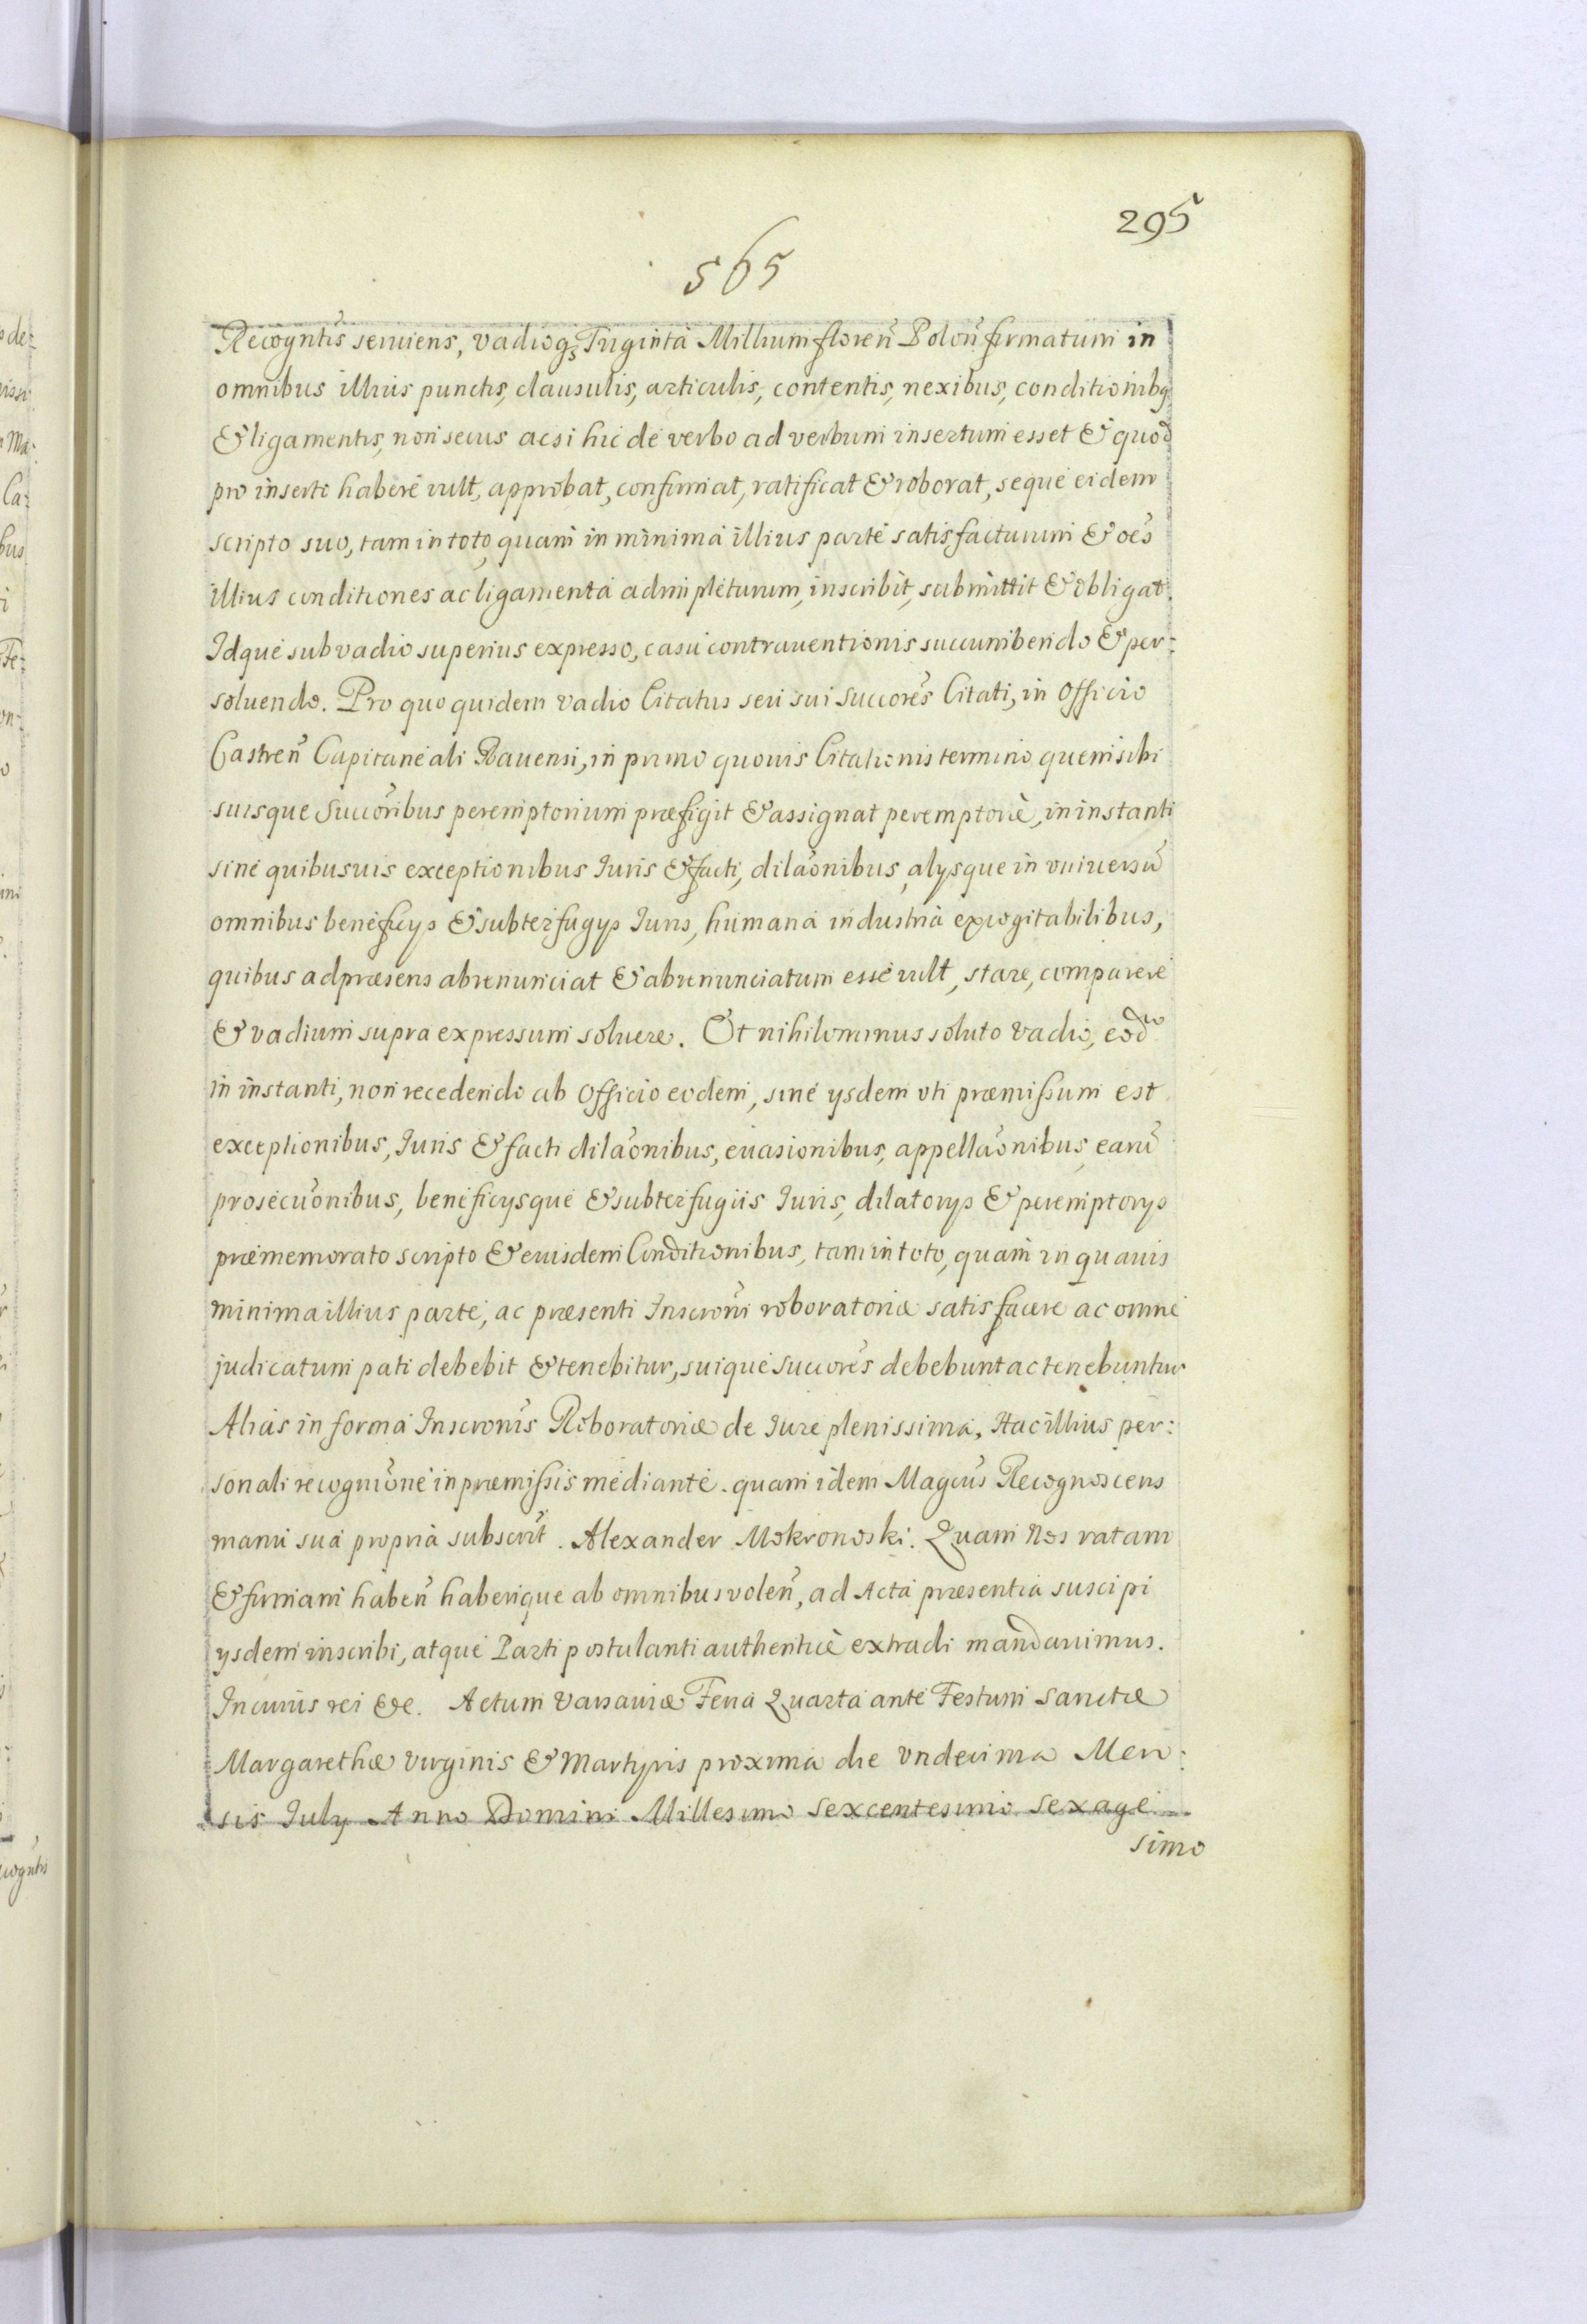 295
565
Recogntis seruiens, vadioq3 Triginta Millium floren Polon firmatum in
omnibus illius punctis, clausulis, articulis, contentis, nexibus, conditionibq
& ligamentis, non secus acsi hic de verbo ad verbum insertum esset & quod
pro inserto habere vult, approbat, confirmat, ratificat & roborat, seque eidem
scripto suo, tam in toto, quam in minima illius parte satisfacturum & oes
illius conditiones ac ligamenta adimpleturum, inscribit, submittit & obligat.
Idque sub vadio superius expresso, casu contrauentionis succumbendo & per:
soluendo. Pro quo quidem vadio Citatus seu sui Succores Citati, in Officio
Castren Capitaneali Rauensi, in primo quouis Citationis termino quem sibi
suisque Succoribus peremptorium præfigit & assignat peremptorie, in instanti
sine quibusuis exceptionibus Iuris & facti, dilaonibus, alysque in vniuersu
omnibus beneficys & subterfugys Iuris, humana industria excogitabilibus,
quibus ad præsens abrenunciat & abrenunciatum esse vult, stare, comparere
& vadium supra expressum soluere. Et nihilominus soluto vadio, eodo
in instanti, non recedendo ab Officio eodem, sine ysdem vti præmissum est
exceptionibus, Iuris & facti dilaonibus, euasionibus, appellaonibus, earu
prosecuonibus, beneficysque & subterfugiis Iuris, dilatorys & peremptorys
præmemorato scripto & eiusdem Conditionibus, tam in toto, quam in quauis
minima illius parte, ac præsenti Inscroni roboratoriæ satisfacere ac omne
judicatum pati debebit & tenebitur, suique succores debebunt ac tenebuntur
Alias in forma Inscronis Roboratoriæ de Iure plenissima, Hac illius per:
sonali recognione in præmissis mediante. quam idem Magcus Recognoscens
manu sua propria subscrit. Alexander Mokronoski. Quam Nos ratam
& firmam haben haberique ab omnibus volen, ad Acta præsentia suscipi
ysdem inscribi, atque Parti postulanti authentice extradi mandauimus.
In cuius rei &c. Actum Varsauiæ Feria Quarta ante Festum Sanctæ
Margarethæ Virginis & Martyris proxima die vndecima Men:
sis July Anno Domini Millesimo Sexcentesimo Sexage
simo